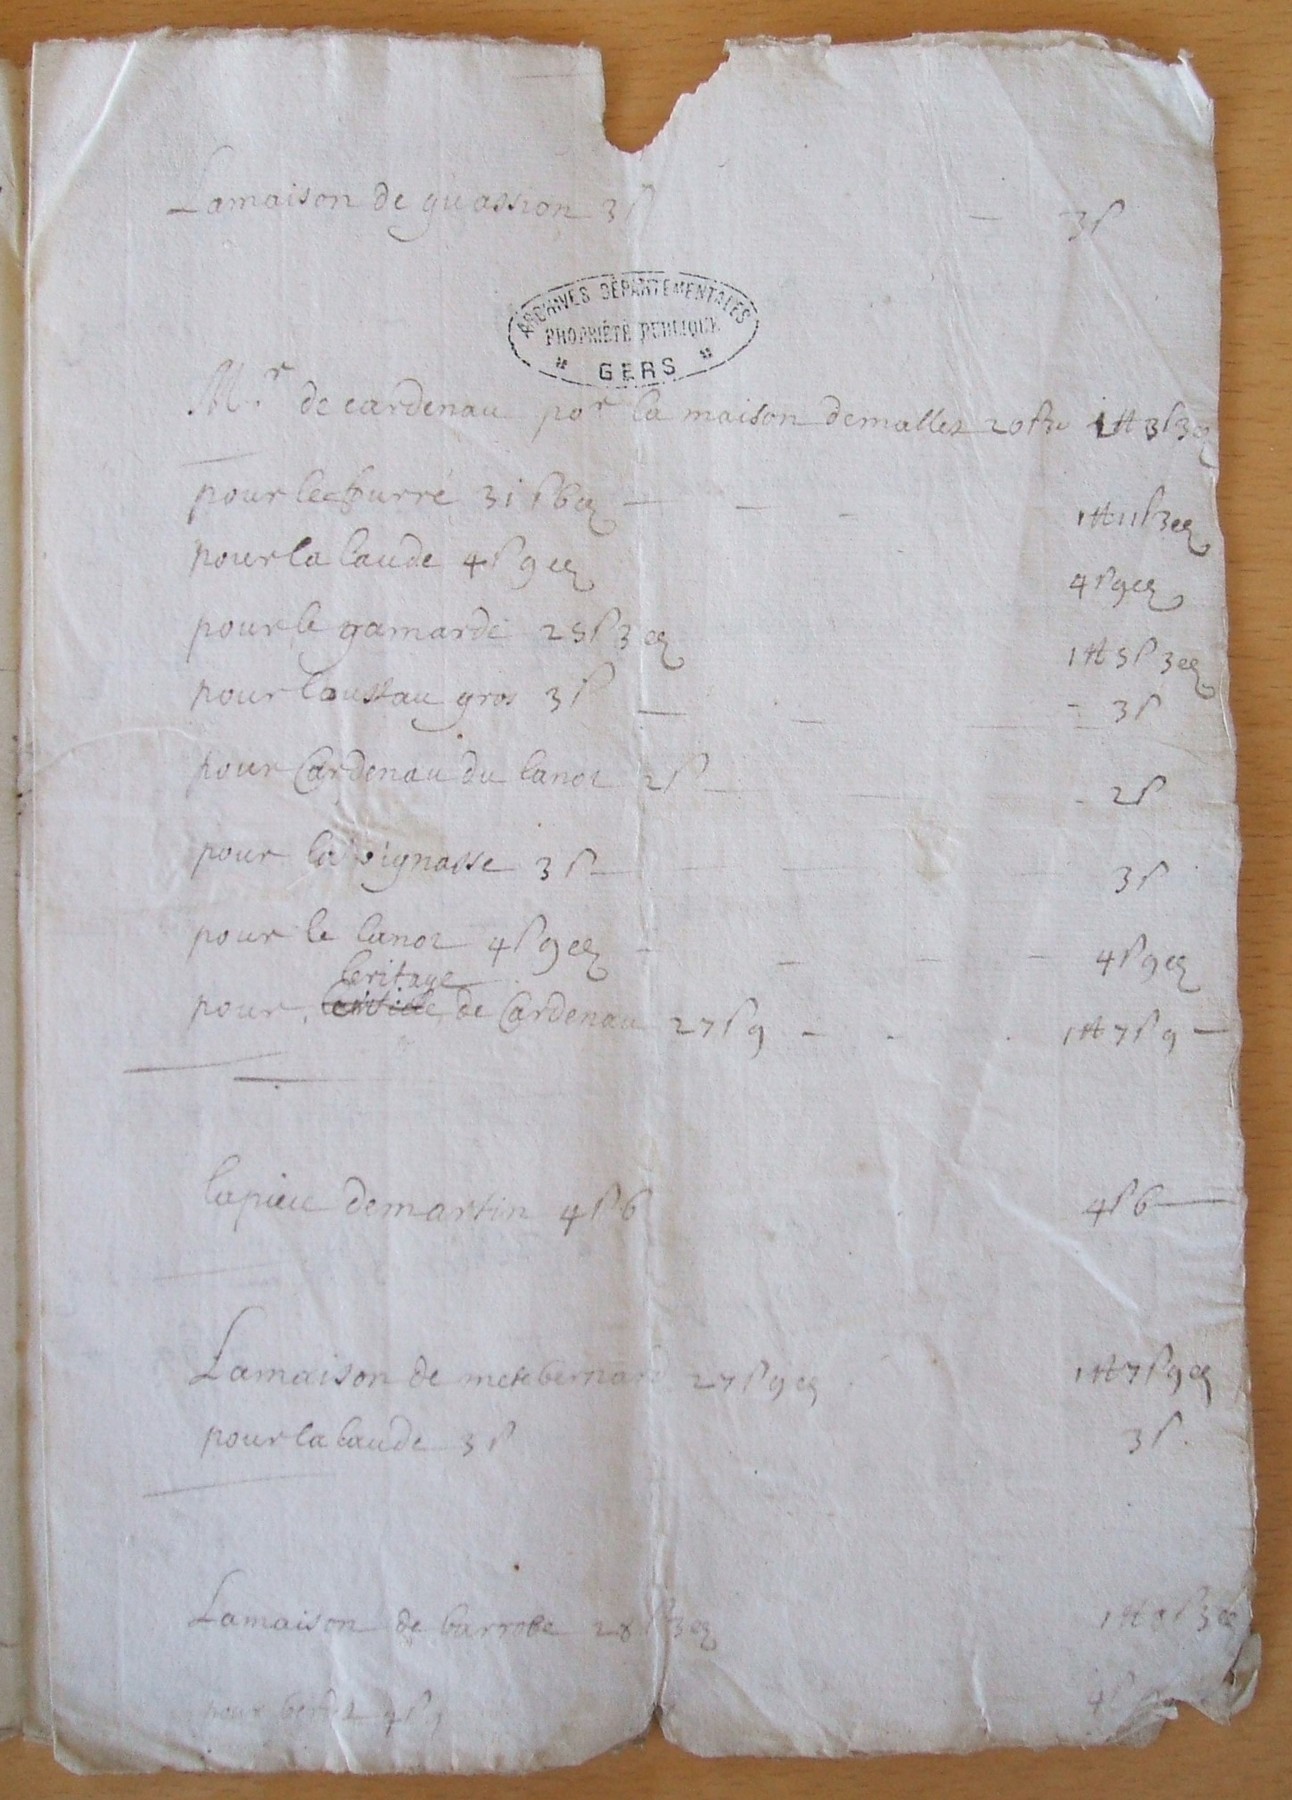 Lamaison de guassion 3 s 3 s
ARCHIVES DÉPARTEMENTALES
PROPRIÉTÉ PUBLIQUE
* GERS *
Mr de cardenau por la maison demallet 1 ₶ 3 s 3 d
pour le 31 s 6 d 1 ₶ 11 s 3 d
pour la laude 4 s 9 d 4 s 9 d
pour le gamarde 25 s 3 d 1 ₶ 5 s 3 d
pour loustau gros 3 s 3 s
pour Cardenau du lanot 2 s 2 s
pour la vignasse 3 s 3 s
pour le lanot 4 s 9 d 4 s 9 d
leritage
pour de Cardenau 27 s 9 1 ₶ 7 s 9
lapiece demartin 4 s 6 4 s 6
Lamaison de metebernard 27 s 9 d 1 ₶ 7 s 9 d
pour la laude 3 s 3 s
Lamaison de barrobe 28 s 3 d 1 ₶ 8 s 3 d
pour 4 s 9 4 s